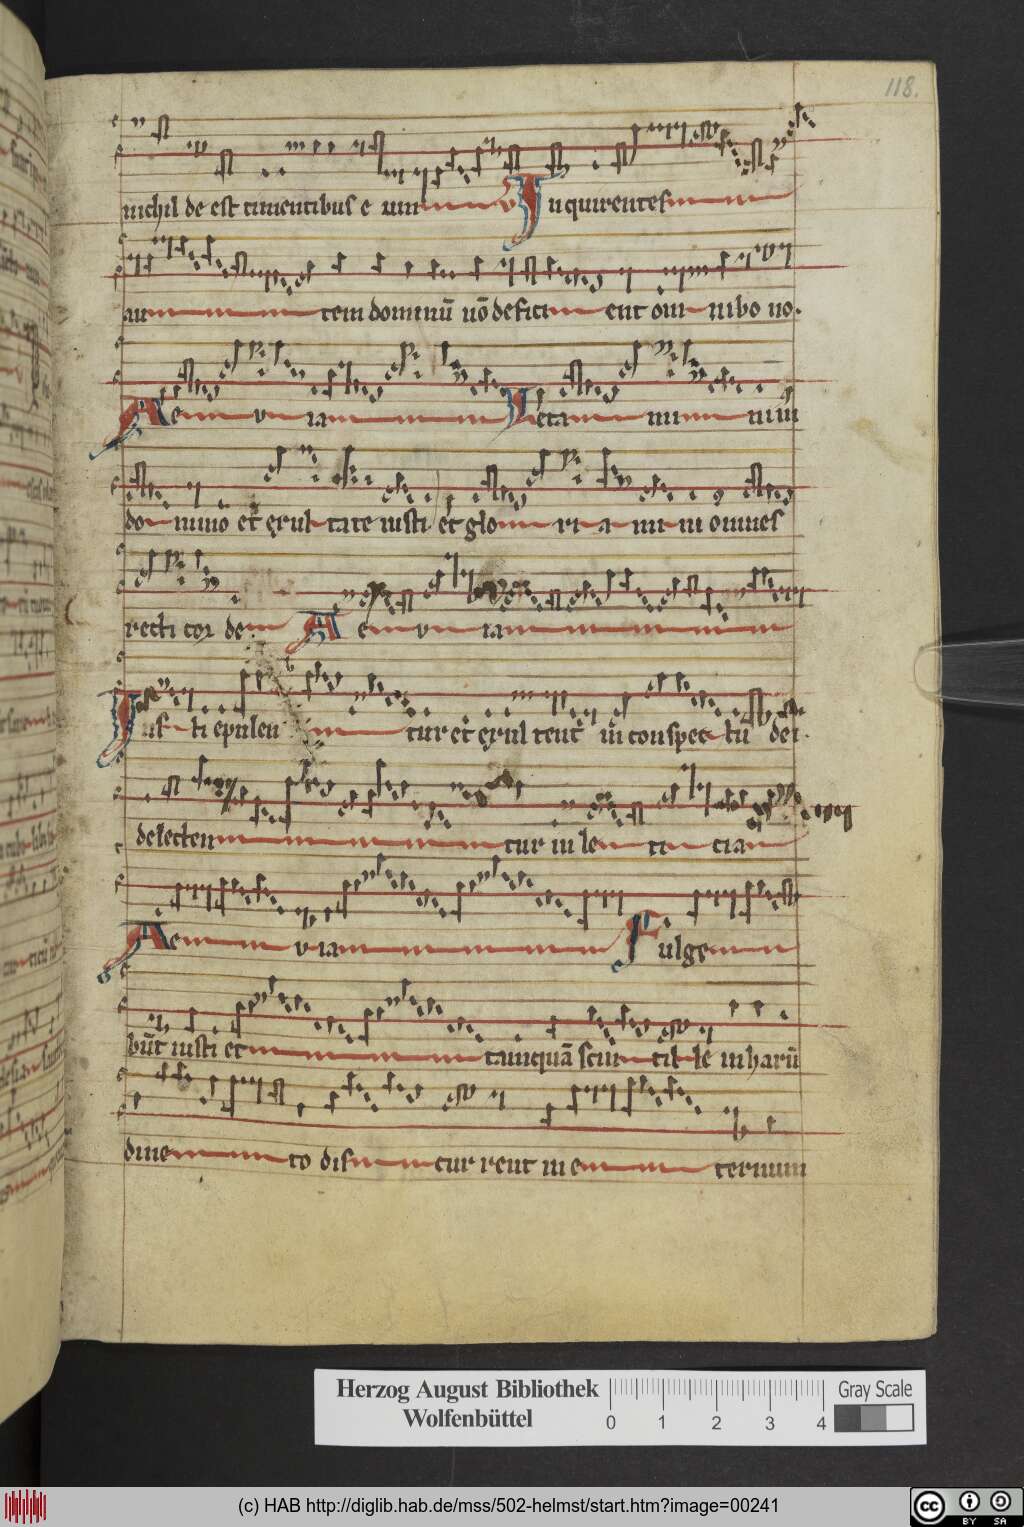 118.
nichil de est timentibus e um Inquirentes
au tem dominū nō defici ent om nibo no.
Ae v ia Leta mi ni in
do mino et exul tate iusti et glo ri a mi ni omnes
recti cor de. Ae v ia
Jus ti epulen tur et exul tent in conspec tū dei.
delecten tur in le ti cia
Ae v ia Fulge
būt iusti et tanquā scin til le in harū
dine to dis cur rent in e ternum
Herzog August Bibliothek
Wolfenbüttel
0 1 2 3 4
Gray Scale
(c) HAB http://diglib.hab.de/mss/502-helmst/start.htm?image=00241
cc BY SA